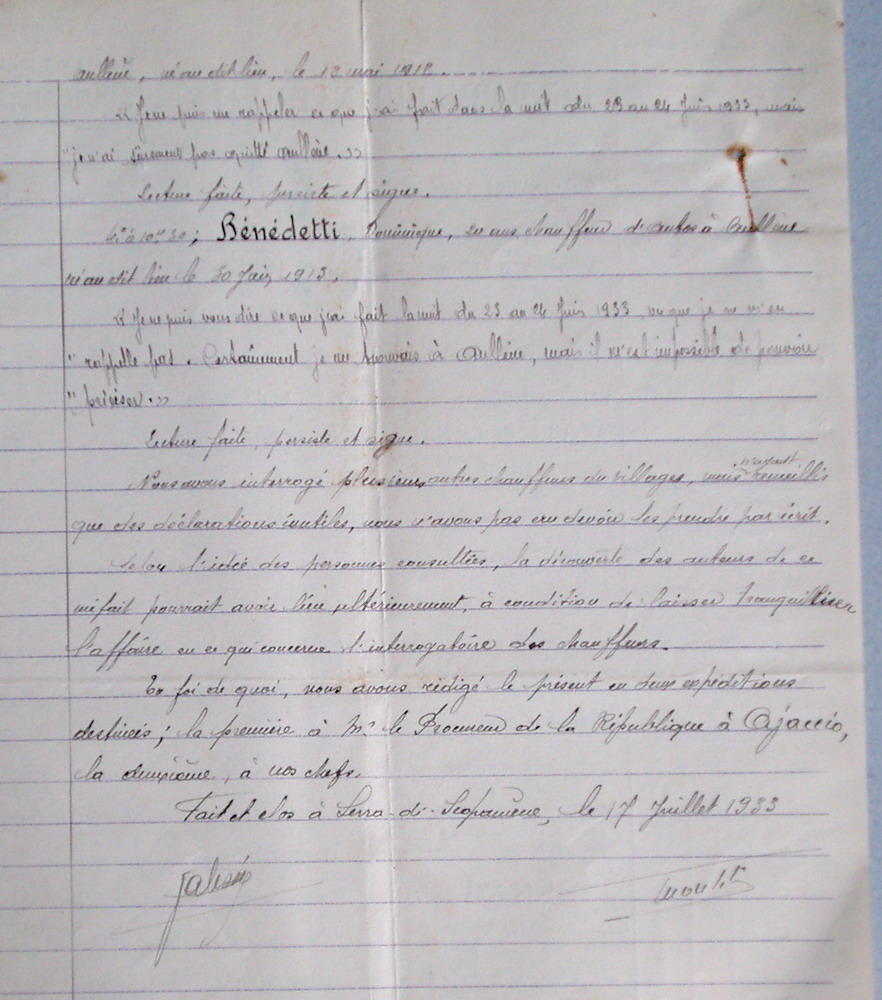 Aullène, né au dit lieu, le 12 mai 1912.
« Je ne puis me rappeler ce que j'ai fait dans la nuit du 23 au 24 Juin 1933, mais
" je n'ai sûrement pas quitté Aullène. »
Lecture faite, persiste et signe.
4° à 10h 30; Bénédetti, Dominique, 20 ans chauffeur d'autos à Aullène
né au dit lieu le 30 Juin 1913.
« Je ne puis vous dire ce que j'ai fait la nuit du 23 au 24 Juin 1933, vu que je ne m'en
" rappelle pas. Certainement je me trouvais à Aullène, mais il m'est impossible de pouvoir
" préciser. »
Lecture faite, persiste et signe.
Nous avons interrogé plusieurs autres chauffeurs du villages, mais n'ayant recueillis
que des déclarations inutiles, nous n'avons pas cru devoir les prendre par écrit.
Selon l'idée des personnes consultées, la découverte des auteurs de ce
méfait pourrait avoir lieu ultérieurement, à condition de laisser tranquilliser
l'affaire en ce qui concerne l'interrogatoire des chauffeurs.
En foi de quoi, nous avons rédigé le présent en deux expéditions
destinées; la première à Mr le Procureur de la République à Ajaccio,
la deuxième, à nos chefs.
Fait et clos à Serra-di-Scopamène, le 17 Juillet 1933